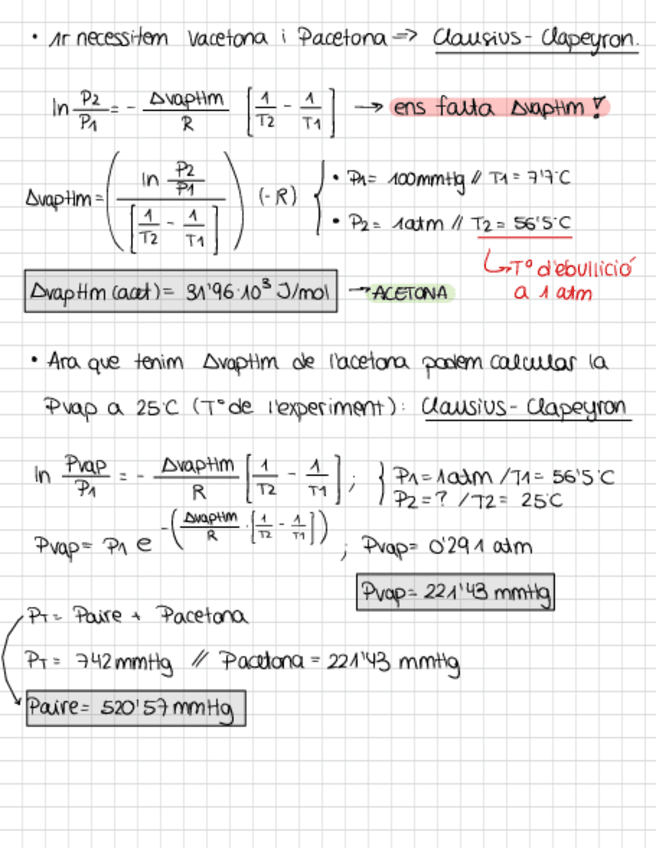 • 1r necessitem Vacetona i Pacetona => Clausius - Clapeyron.
ln P2/P1 = - ΔvapHm/R [1/T2 - 1/T1] → ens falta ΔvapHm!
ΔvapHm = (ln P2/P1 / [1/T2 - 1/T1]) (-R) { • P1 = 100mmHg // T1 = 7'7°C
• P2 = 1atm // T2 = 56'5°C
↳ Tº d'ebullició
a 1 atm
ΔvapHm (acet) = 31'96·10³ J/mol → ACETONA
• Ara que tenim ΔvapHm de l'acetona podem calcular la
Pvap a 25°C (Tº de l'experiment): Clausius - Clapeyron
ln Pvap/P1 = - ΔvapHm/R [1/T2 - 1/T1] ; } P1 = 1atm / T1 = 56'5°C
P2 = ? / T2 = 25°C
Pvap = P1 e^-(ΔvapHm/R · [1/T2 - 1/T1]) ; Pvap = 0'291 atm
Pvap = 221'43 mmHg
PT = Paire + Pacetona
PT = 742 mmHg // Pacetona = 221'43 mmHg
Paire = 520'57 mmHg